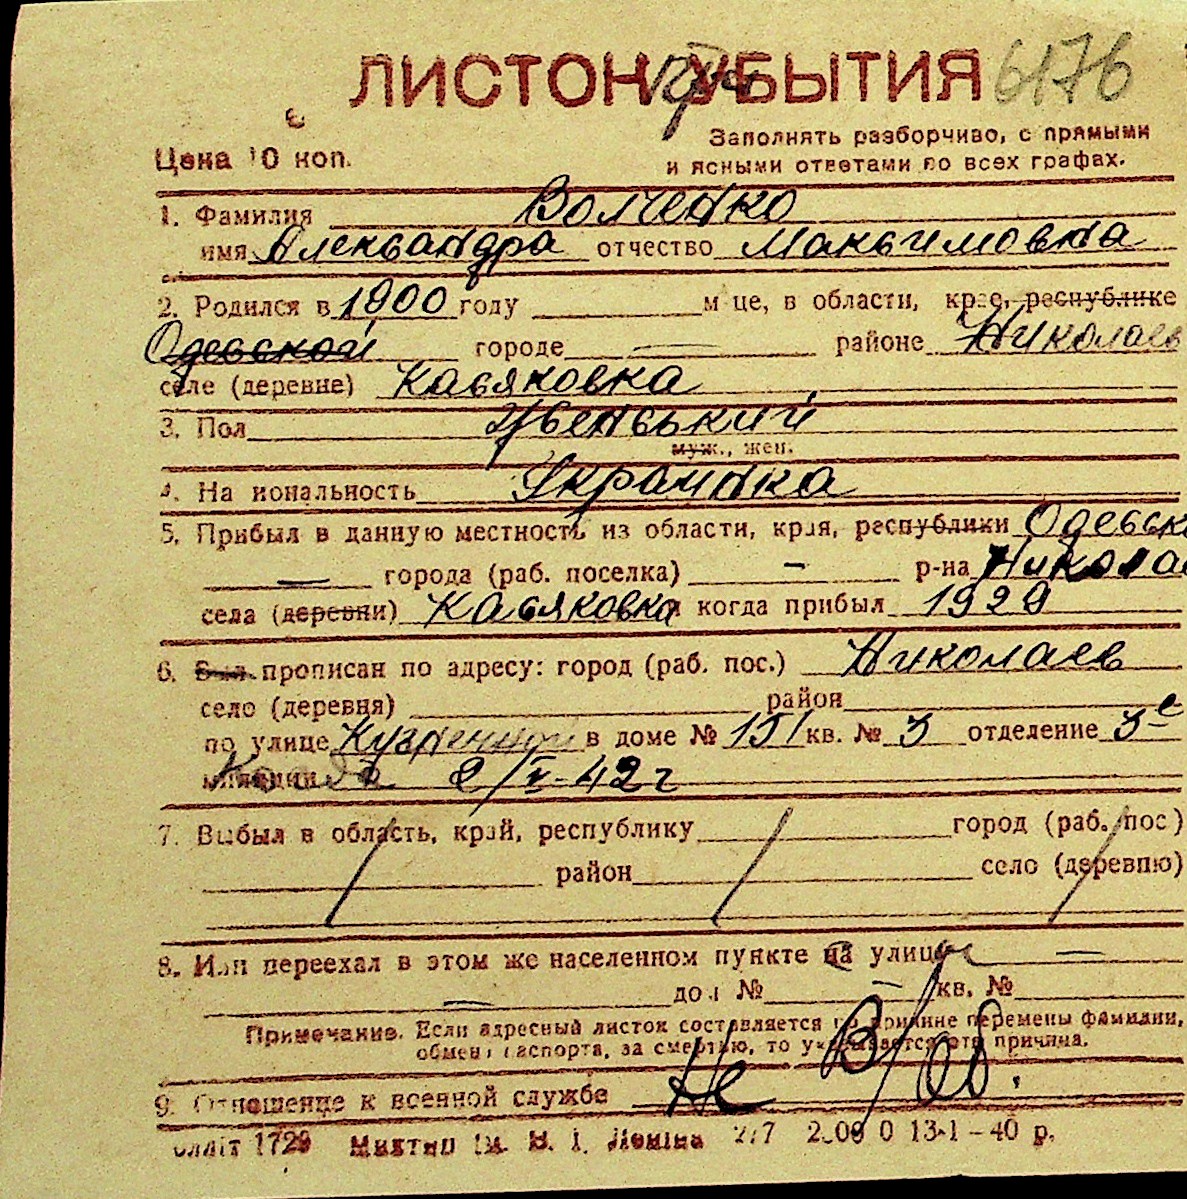 ЛИСТОК УБЫТИЯ 6176
Цена 10 коп.
Заполнять разборчиво, с прямыми
и ясными ответами по всех графах.
1. Фамилия Волченко
имя Александра отчество Максимовна
2. Родился в 1900 году м-це, в области, крае, республике
Одесской городе — районе Николаев
селе (деревне) Касяковка
3. Пол Женський
муж., жен.
4. Национальность Украинка
5. Прибыл в данную местность из области, края, республики Одесск
— города (раб. поселка) - р-на Николае
села (деревни) Касяковка и когда прибыл 1929
6. Был прописан по адресу: город (раб. пос.) Николаев
село (деревня) район
по улице Кузнечной в доме № 151 кв. № 3 отделение 3е
милиции 2/V-42 г
7. Выбыл в область, край, республику город (раб. пос)
район село (деревню)
8. Или переехал в этом же населенном пункте на улицу —
— дом № — кв. №
Примечание. Если адресный листок составляется по причине перемены фамилии,
обмена паспорта, за смертью, то указывается эта причина.
9. Отношение к военной службе Не в/об.
лліт 1729 Миктип ім. В. І. Леніна 13-1-40 р.